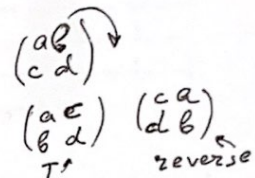 (a b
c d)
(a c
b d) (c a
d b)
T reverse